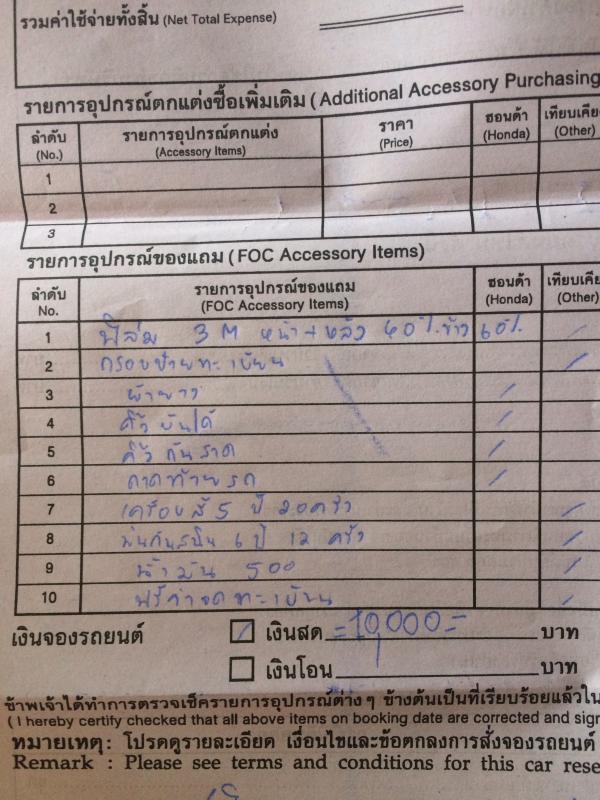 รวมค่าใช้จ่ายทั้งสิ้น (Net Total Expense)
รายการอุปกรณ์ตกแต่งซื้อเพิ่มเติม ( Additional Accessory Purchasing
ลำดับ (No.) รายการอุปกรณ์ตกแต่ง (Accessory Items) ราคา (Price) ฮอนด้า (Honda) เทียบเคีย (Other)
1
2
3
รายการอุปกรณ์ของแถม ( FOC Accessory Items)
ลำดับ No. รายการอุปกรณ์ของแถม (FOC Accessory Items) ฮอนด้า (Honda) เทียบเคีย (Other)
1 ฟิล์ม 3M หน้า+หลัง 40% ข้าง 60%
2 กรอบป้ายทะเบียน
3 ผ้ายาง
4 คิ้วบันได
5 คิ้วกันสาด
6 ถาดท้ายรถ
7 เคลือบสี 5 ปี 20 ครั้ง
8 พ่นกันสนิม 6 ปี 12 ครั้ง
9 น้ำมัน 500
10 ฟรีค่าจดทะเบียน
เงินจองรถยนต์ เงินสด =10,000= บาท
เงินโอน บาท
ข้าพเจ้าได้ทำการตรวจเช็ครายการอุปกรณ์ต่าง ๆ ข้างต้นเป็นที่เรียบร้อยแล้วใน
( I hereby certify checked that all above items on booking date are corrected and sign
หมายเหตุ : โปรดดูรายละเอียด เงื่อนไขและข้อตกลงการสั่งจองรถยนต์
Remark : Please see terms and conditions for this car rese